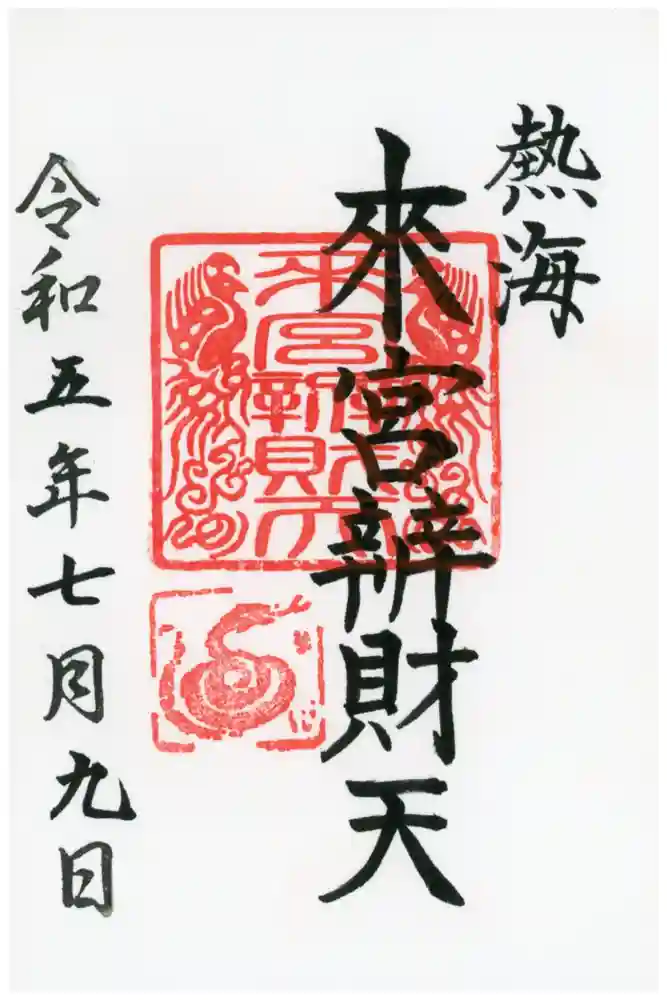 熱海
來宮辨財天
來宮辨財天
令和五年七月九日